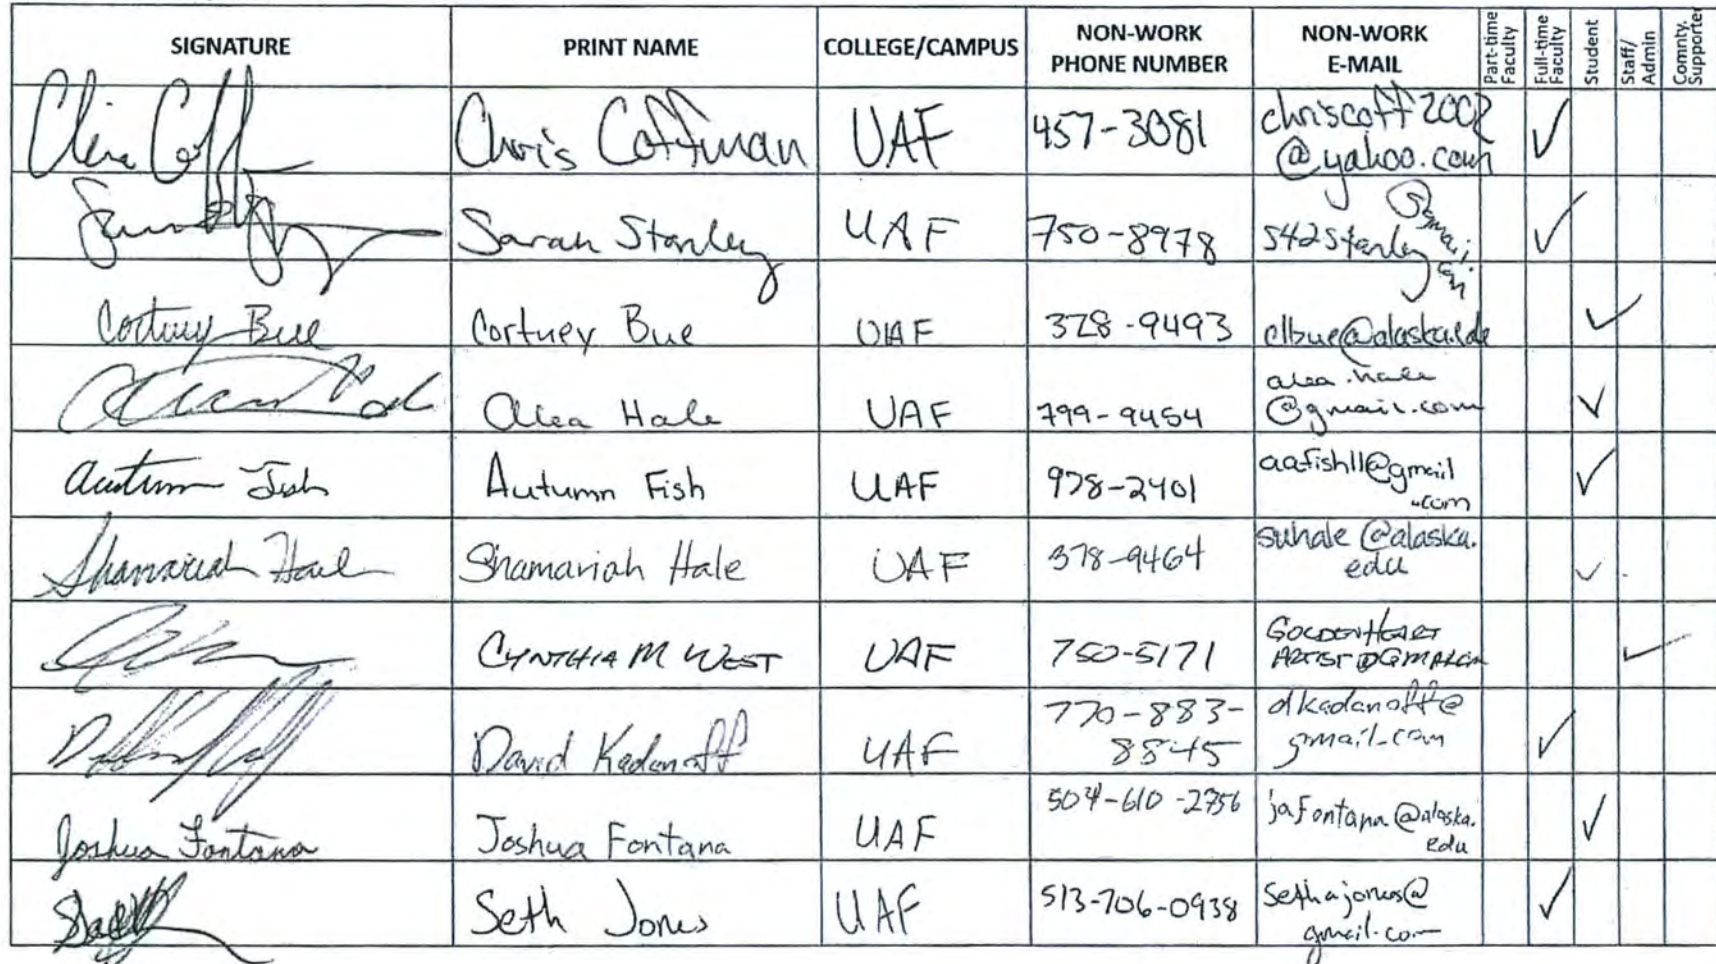 SIGNATURE PRINT NAME COLLEGE/CAMPUS NON-WORK PHONE NUMBER NON-WORK E-MAIL Part-time Faculty Full-time Faculty Student Staff/ Admin Comnty. Supporter
Chris Coffman UAF 457-3081 chriscoff2002
@yahoo.com
Sarah Stanley UAF 750-8978 s42stanley @gmail
Cortney Bue Cortney Bue UAF 328-9493 clbue@alaska.edu
Alea Hale UAF 799-9454 alea.hale
@gmail.com
Autumn Fish Autumn Fish UAF 978-2401 aafish11@gmail
.com
Shamariah Hale Shamariah Hale UAF 378-9464 suhale@alaska.
edu
CYNTHIA M WEST UAF 750-5171 GOLDENHEART
ARTIST@GMAIL.COM
David Kadanoff UAF 770-883- dkadanoff@
8845 gmail.com
Joshua Fontana Joshua Fontana UAF 504-610-2756 jafontana@alaska.
edu
Seth Jones UAF 513-706-0938 sethajones@
gmail.com